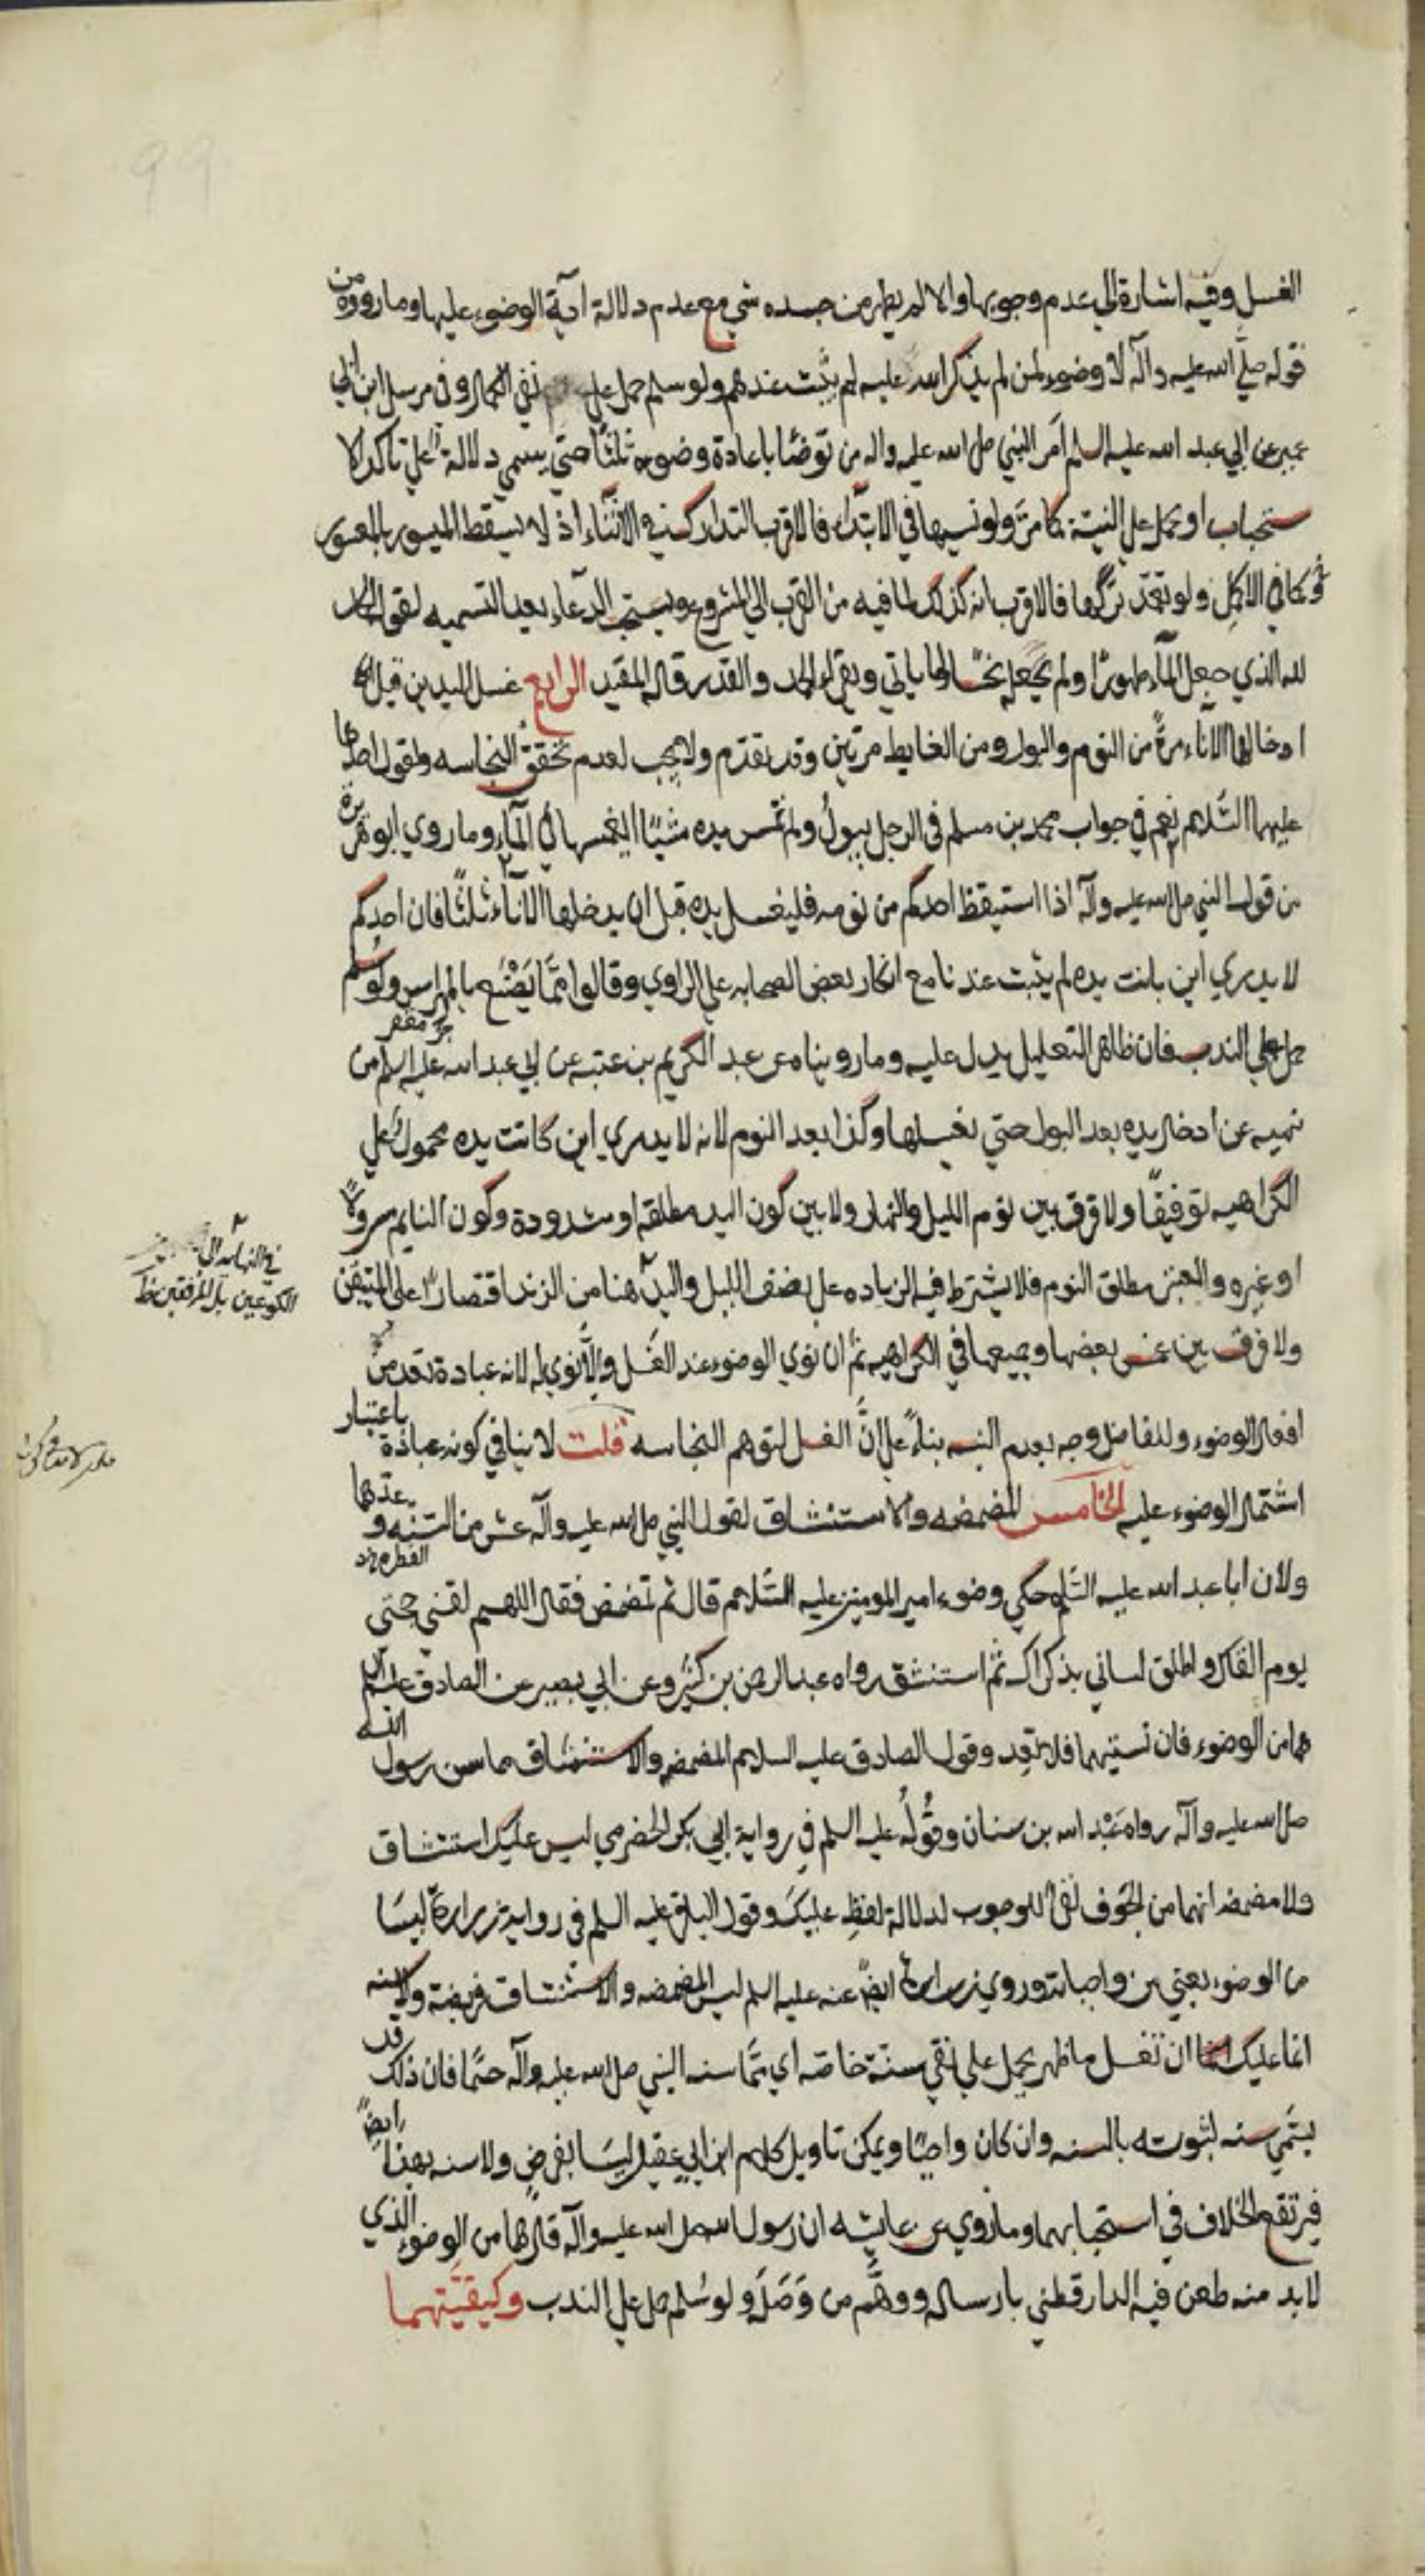 الغسل وفيه اشارة الي عدم وجوبها والا لم يطهر من جسده شي مع عدم دلالة آية الوضوء عليها وما رووه من
قوله صلى الله عليه وآله لا وضوء لمن لم يذكر الله عليه لم يثبت عندهم ولو سلم حمل علي نفي الكمال وفي مرسل ابن ابي
عمير عن ابي عبد الله عليه السلم امر النبي صلى الله عليه واله من توضا باعادة وضوءه ثلثا حتي يسمي دلالة علي تاكد الا
ستحباب او يحمل علي النية كما مر ولو نسيها في الابتداء فالاقرب التدارك في الاثناء اذ لا يسقط الميسور بالمعسور
وكما في الاكل ولو تعمد تركها فالاقرب انه كذلك لما فيه من القرب الي المشروع ويستحب الدعاء بعد التسميه لقول الحمد
لله الذي جعل الماء طهورا ولم يجعله نجسا لما ياتي ويقراء الحمد والقدر قاله المفيد الرابع غسل اليدين قبل
ادخالهما الاناء مرة من النوم والبول ومن الغايط مرتين وقد تقدم ولا يجب لعدم تحقق النجاسه ولقول احدهما
عليهما السلام نعم في جواب محمد بن مسلم في الرجل يبول ولم تمس يده شيئا ايغمسها في الماء وما روي ابو هريرة
من قول النبي صلى الله عليه وآله اذا استيقظ احدكم من نومه فليغسل يده قبل ان يدخلها الاناء ثلثا فان احدكم
لا يدري اين باتت يده لم يثبت عندنا مع انكار بعض الصحابه علي الراوي وقالوا فما يصنع بالمهراس ولو سلم
حمل علي الندب فان ظاهر التعليل يدل عليه وما رويناه عن عبد الكريم بن عتبه عن ابي عبد الله عليه السلم من
نهيه عن ادخال يده بعد البول حتي يغسلها وكذا بعد النوم لانه لا يدري اين كانت يده محمول علي
الكراهيه توفيقا ولا فرق بين نوم الليل والنهار ولا بين كون اليد مطلقه او مشدودة وكون النايم مسرولا
او غيره والمعتبر مطلق النوم فلا يشترط فيه الزياده علي نصف الليل واليد هنا من الزند اقتصارا علي المتيقن
ولا فرق بين غمس بعضها وجميعها في الكراهيه ثم ان نوي الوضوء عند الغسل والا نوي له لانه عبادة تعد من
افعال الوضوء وللفاضل وجه بعدم النيه بناء علي ان الغسل لتوهم النجاسه قلت لا ينافي كونه عبادة باعتبار
اشتمال الوضوء عليه الخامس المضمضه والاستنشاق لقول النبي صلى الله عليه وآله عشر من السنه وعدهما
ولان ابا عبد الله عليه السلم حكي وضوء امير المومنين عليه السلام قال ثم تمضمض فقال اللهم لقني حجتي
يوم القاك واطلق لساني بذكراك ثم استنشق رواه عبد الرحمن بن كثير وعن ابي بصير عن الصادق عليه السلم
هما من الوضوء فان نسيتهما فلا تعد وقول الصادق عليه السلام المضمضه والاستنشاق مما سن رسول الله
صلى الله عليه وآله رواه عبد الله بن سنان وقوله عليه السلم في رواية ابي بكر الحضرمي ليس عليك استنشاق
ولا مضمضه انهما من الجوف نفي للوجوب لدلالة لفظ عليك وقول الباقر عليه السلم في رواية زرارة ليسا
من الوضوء يعني من واجباته وروي زرارة ايضا عنه عليه السلم ليس المضمضه والاستنشاق فريضة ولا سنه
انما عليك ان تغسل ما ظهر يحمل علي نفي سنة خاصة اي مما سنه النبي صلى الله عليه وآله حتما فان ذلك قد
يسمي سنه لثبوته بالسنه وان كان واجبا ويمكن تاويل كلام ابن ابي عقيل ليسا بفرض ولا سنه بهذا ايضا
فيرتفع الخلاف في استحبابهما وما روي عن عايشه ان رسول الله صلى الله عليه وآله قال هما من الوضوء الذي
لا بد منه طعن فيه الدارقطني بارساله ووهم من وصله ولو سلم حمل علي الندب وكيفيتهما